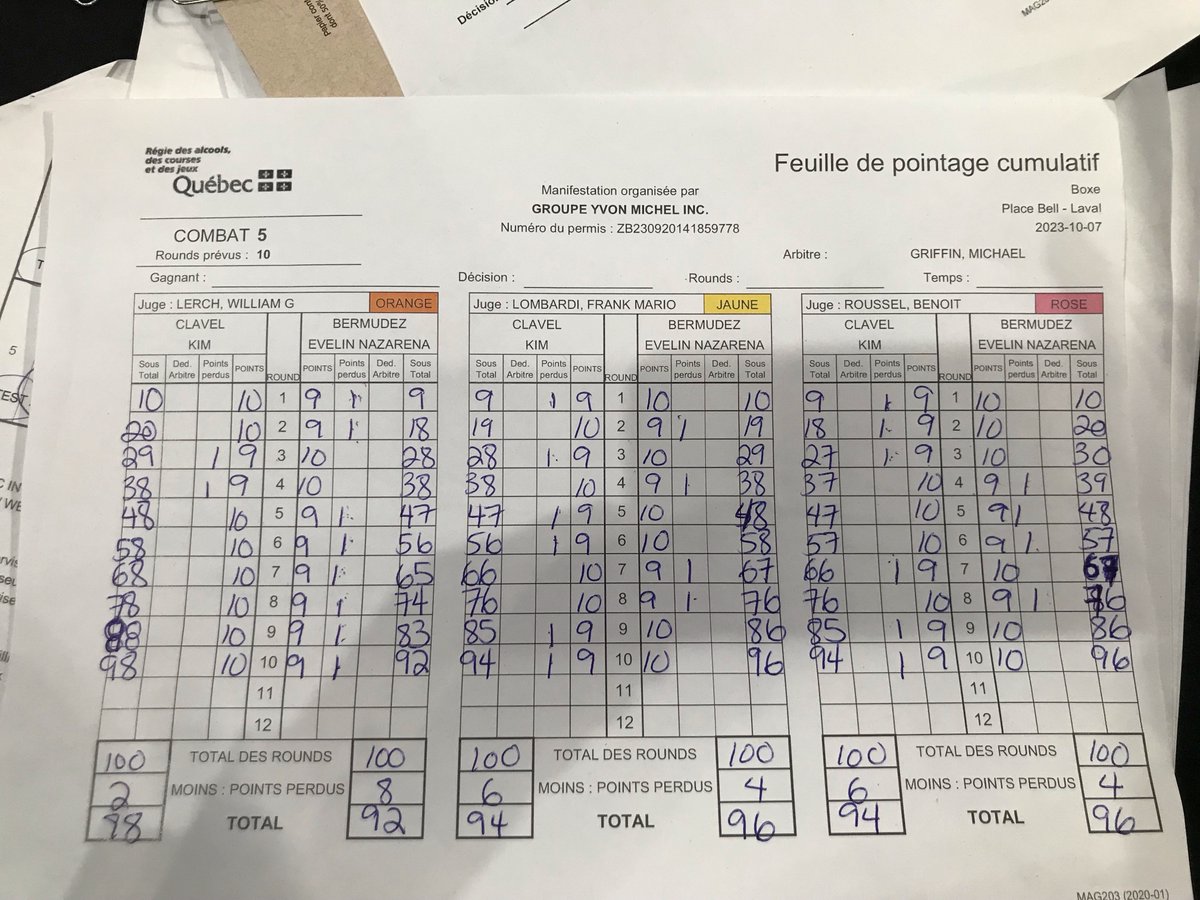 Papier con
dont 50%
Décision
MAG20
Régie des alcools,
des courses
et des jeux
Québec
Feuille de pointage cumulatif
Manifestation organisée par
Boxe
GROUPE YVON MICHEL INC.
Place Bell - Laval
Numéro du permis : ZB230920141859778
2023-10-07
COMBAT 5
Rounds prévus : 10
Arbitre : GRIFFIN, MICHAEL
Gagnant : Décision : Rounds : Temps :
Juge : LERCH, WILLIAM G ORANGE Juge : LOMBARDI, FRANK MARIO JAUNE Juge : ROUSSEL, BENOIT ROSE
CLAVEL BERMUDEZ CLAVEL BERMUDEZ CLAVEL BERMUDEZ
KIM EVELIN NAZARENA KIM EVELIN NAZARENA KIM EVELIN NAZARENA
Sous Total Ded. Arbitre Points perdus POINTS ROUND POINTS Points perdus Ded. Arbitre Sous Total Sous Total Ded. Arbitre Points perdus POINTS ROUND POINTS Points perdus Ded. Arbitre Sous Total Sous Total Ded. Arbitre Points perdus POINTS ROUND POINTS Points perdus Ded. Arbitre Sous Total
10 10 1 9 1 9 9 1 9 1 10 10 9 1 9 1 10 10
20 10 2 9 1 18 19 10 2 9 1 19 18 1 9 2 10 20
29 1 9 3 10 28 28 1 9 3 10 29 27 1 9 3 10 30
38 1 9 4 10 38 38 10 4 9 1 38 37 10 4 9 1 39
48 10 5 9 1 47 47 1 9 5 10 48 47 10 5 9 1 48
58 10 6 9 1 56 56 1 9 6 10 58 57 10 6 9 1 57
68 10 7 9 1 65 66 10 7 9 1 67 66 1 9 7 10 67
78 10 8 9 1 74 76 10 8 9 1 76 76 10 8 9 1 76
88 10 9 9 1 83 85 1 9 9 10 86 85 1 9 9 10 86
98 10 10 9 1 92 94 1 9 10 10 96 94 1 9 10 10 96
11 11 11
12 12 12
100 TOTAL DES ROUNDS 100 100 TOTAL DES ROUNDS 100 100 TOTAL DES ROUNDS 100
2 MOINS : POINTS PERDUS 8 6 MOINS : POINTS PERDUS 4 6 MOINS : POINTS PERDUS 4
98 TOTAL 92 94 TOTAL 96 94 TOTAL 96
MAG203 (2020-01)